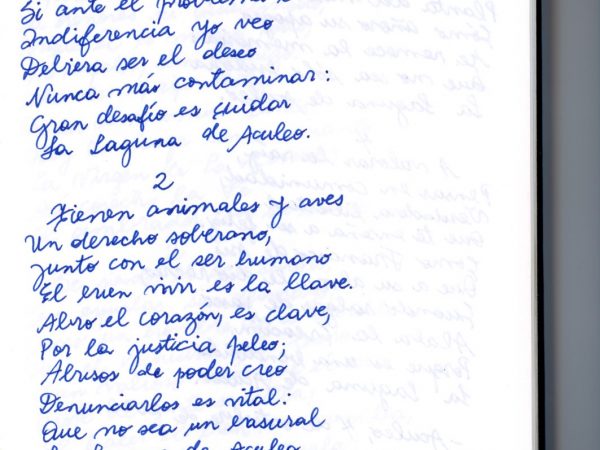 Si ante el problema
Indiferencia yo veo
Debiera ser el deseo
Nunca más contaminar:
Gran desafío es cuidar
La Laguna de Aculeo.
2
Tienen animales y aves
Un derecho soberano,
Junto con el ser humano
El buen vivir es la llave.
Abro el corazón, es clave,
Por la justicia peleo;
Abusos de poder creo
Denunciarlos es vital:
Que no sea un basural
de Aculeo